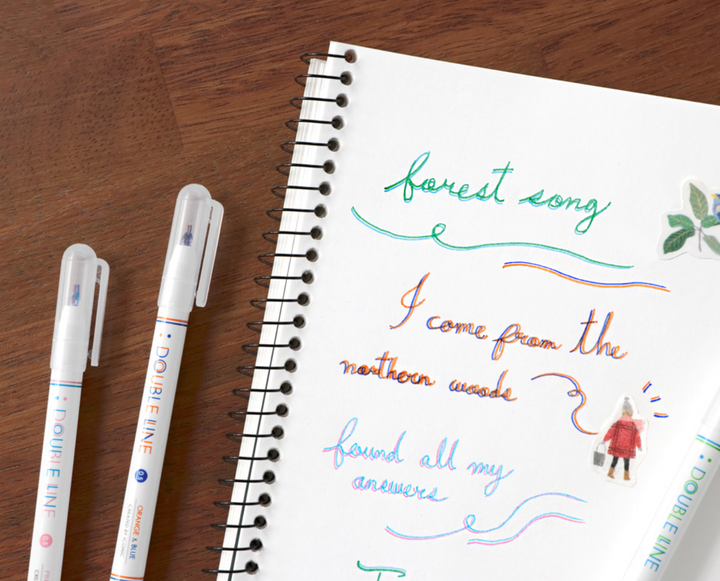 forest song
I come from the
northern woods
found all my
answers
DOUBLE LINE
DOUBLE LINE
ORANGE & BLUE
DOUBLE LINE